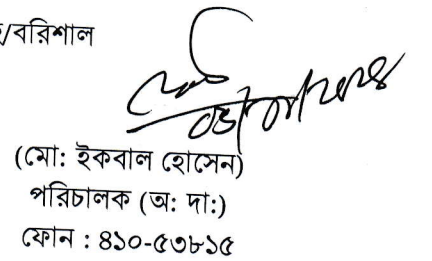 /বরিশাল
(মো: ইকবাল হোসেন)
পরিচালক (অ: দা:)
ফোন : ৪১০-৫৩৮১৫